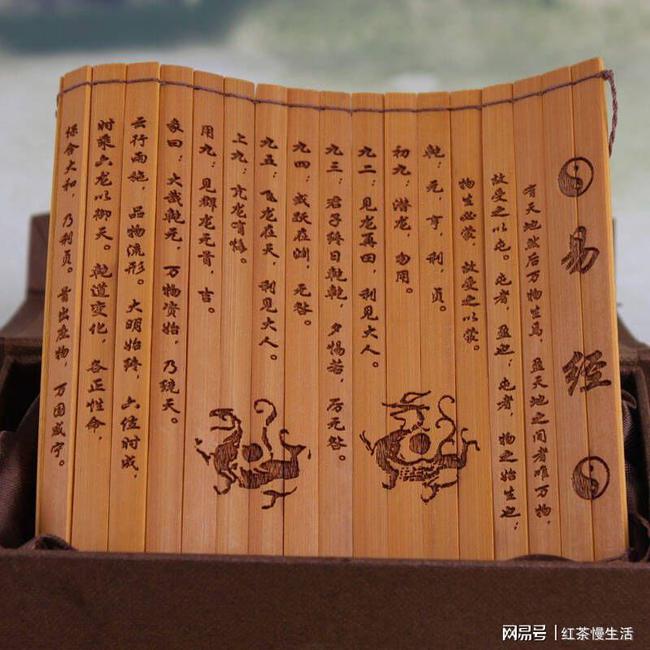 易经
有天地然后万物生焉，盈天地之间者唯万物，
故受之以屯。屯者，盈也；屯者，物之始生也；
物生必蒙，故受之以蒙。
乾，元，亨，利，贞。
初九：潜龙，勿用。
九二：见龙再田，利见大人。
九三：君子终日乾乾，夕惕若，厉无咎。
九四：或跃在渊，无咎。
九五：飞龙在天，利见大人。
上九：亢龙有悔。
用九：见群龙无首，吉。
彖曰：大哉乾元，万物资始，乃统天。
云行雨施，品物流形。大明始终，六位时成，
时乘六龙以御天。乾道变化，各正性命，
保合大和，乃利贞。首出庶物，万国咸宁。
网易号 | 红茶慢生活